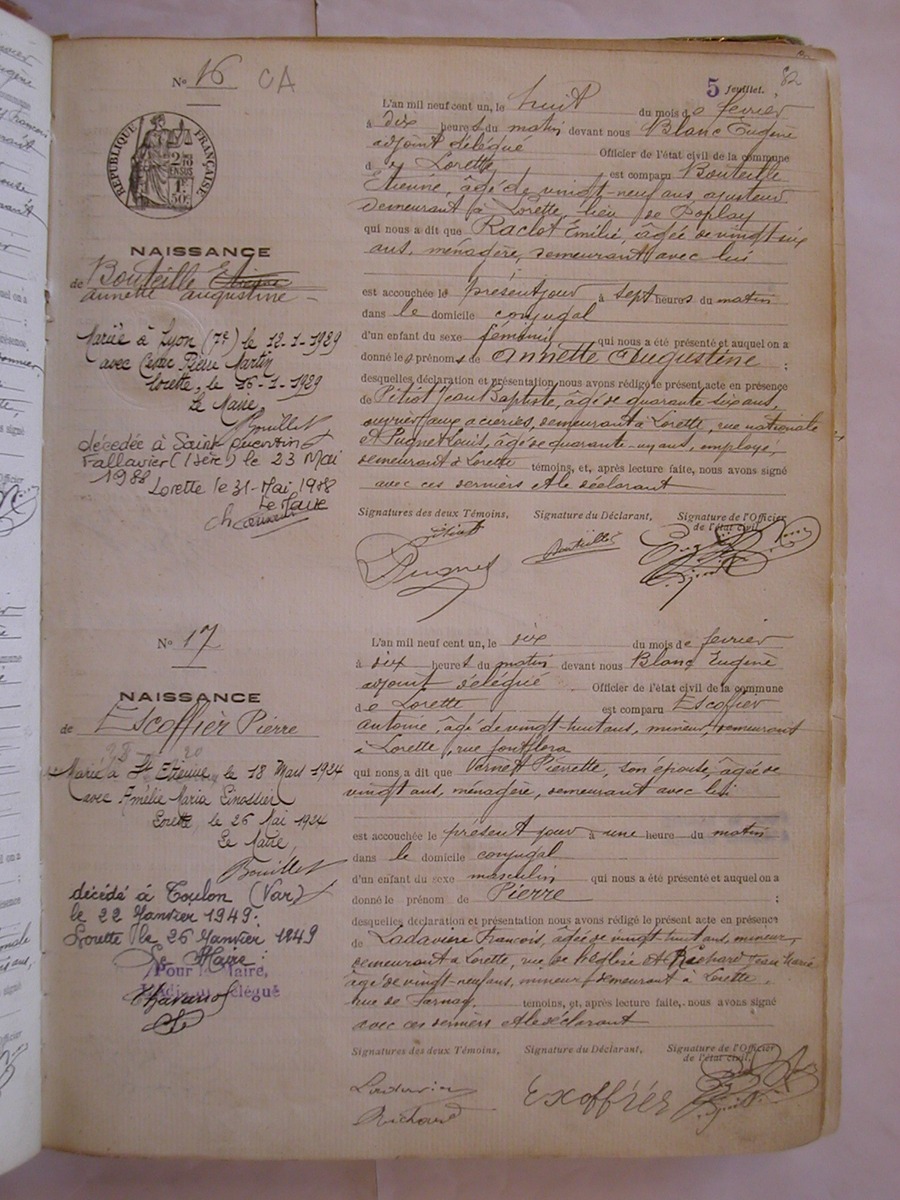 N° 16 CA
5 feuillet. 82
RÉPUBLIQUE FRANÇAISE
NAISSANCE
de Bouteille Etienne
annette augustine
Mariée à Lyon (7e) le 12-1-1929
avec César Pierre Martin
Lorette, le 16-1-1929
Le Maire
Bouillet
décédée à Saint Quentin
Fallavier (Isère) le 23 Mai
1988
Lorette le 31-Mai 1988
Le Maire
L'an mil neuf cent un, le huit du mois de février
à dix heures du matin devant nous Blanc Eugène
adjoint délégué Officier de l'état civil de la commune
de Lorette est comparu Bouteille
Etienne, âgé de vingt-neuf ans, ajusteur
demeurant à Lorette, lieu de Poplay
qui nous a dit que Raclot Emilie, âgée de vingt six
ans, ménagère, demeurant avec lui
est accouchée le présent jour à sept heures du matin
dans le domicile conjugal
d'un enfant du sexe féminin qui nous a été présenté et auquel on a
donné les prénoms de annette Augustine ;
desquelles déclaration et présentation nous avons rédigé le présent acte en présence
de Pitiot Jean Baptiste, âgé de quarante six ans,
ouvrier aux aciéries, demeurant à Lorette, rue nationale
et Pugnet Louis, âgé de quarante-un ans, employé,
demeurant à Lorette témoins, et, après lecture faite, nous avons signé
avec ces derniers et le déclarant
Signatures des deux Témoins, Signature du Déclarant, Signature de l'Officier
de l'état civil,
Pitiot
Pugnet
Bouteille
N° 17
NAISSANCE
de Escoffier Pierre
Marié à St Etienne le 18 Mars 1924
avec Amélie Maria Linossier
Lorette, le 26 Mai 1924
Le Maire,
Bouillet
décédé à Toulon (Var)
le 22 Janvier 1949.
Lorette le 26 Janvier 1949
Le Maire :
Pour le Maire,
L'Adjoint délégué
L'an mil neuf cent un, le dix du mois de février
à dix heures du matin devant nous Blanc Eugène
adjoint délégué Officier de l'état civil de la commune
de Lorette est comparu Escoffier
antoine, âgé de vingt-huit ans, mineur, demeurant
à Lorette, rue jontflora
qui nous a dit que Vernet Pierrette, son épouse, âgée de
vingt ans, ménagère, demeurant avec lui
est accouchée le présent jour à une heure du matin
dans le domicile conjugal
d'un enfant du sexe masculin qui nous a été présenté et auquel on a
donné le prénom de Pierre ;
desquelles déclaration et présentation nous avons rédigé le présent acte en présence
de Ladavière François, âgé de vingt huit ans, mineur,
demeurant à Lorette, rue de l'église et Richard Jean Marie
âgé de vingt-neuf ans, mineur, demeurant à Lorette,
rue de Jarnay, témoins, et, après lecture faite, nous avons signé
avec ces derniers et le déclarant
Signatures des deux Témoins, Signature du Déclarant, Signature de l'Officier
de l'état civil,
Richard
Exoffrér